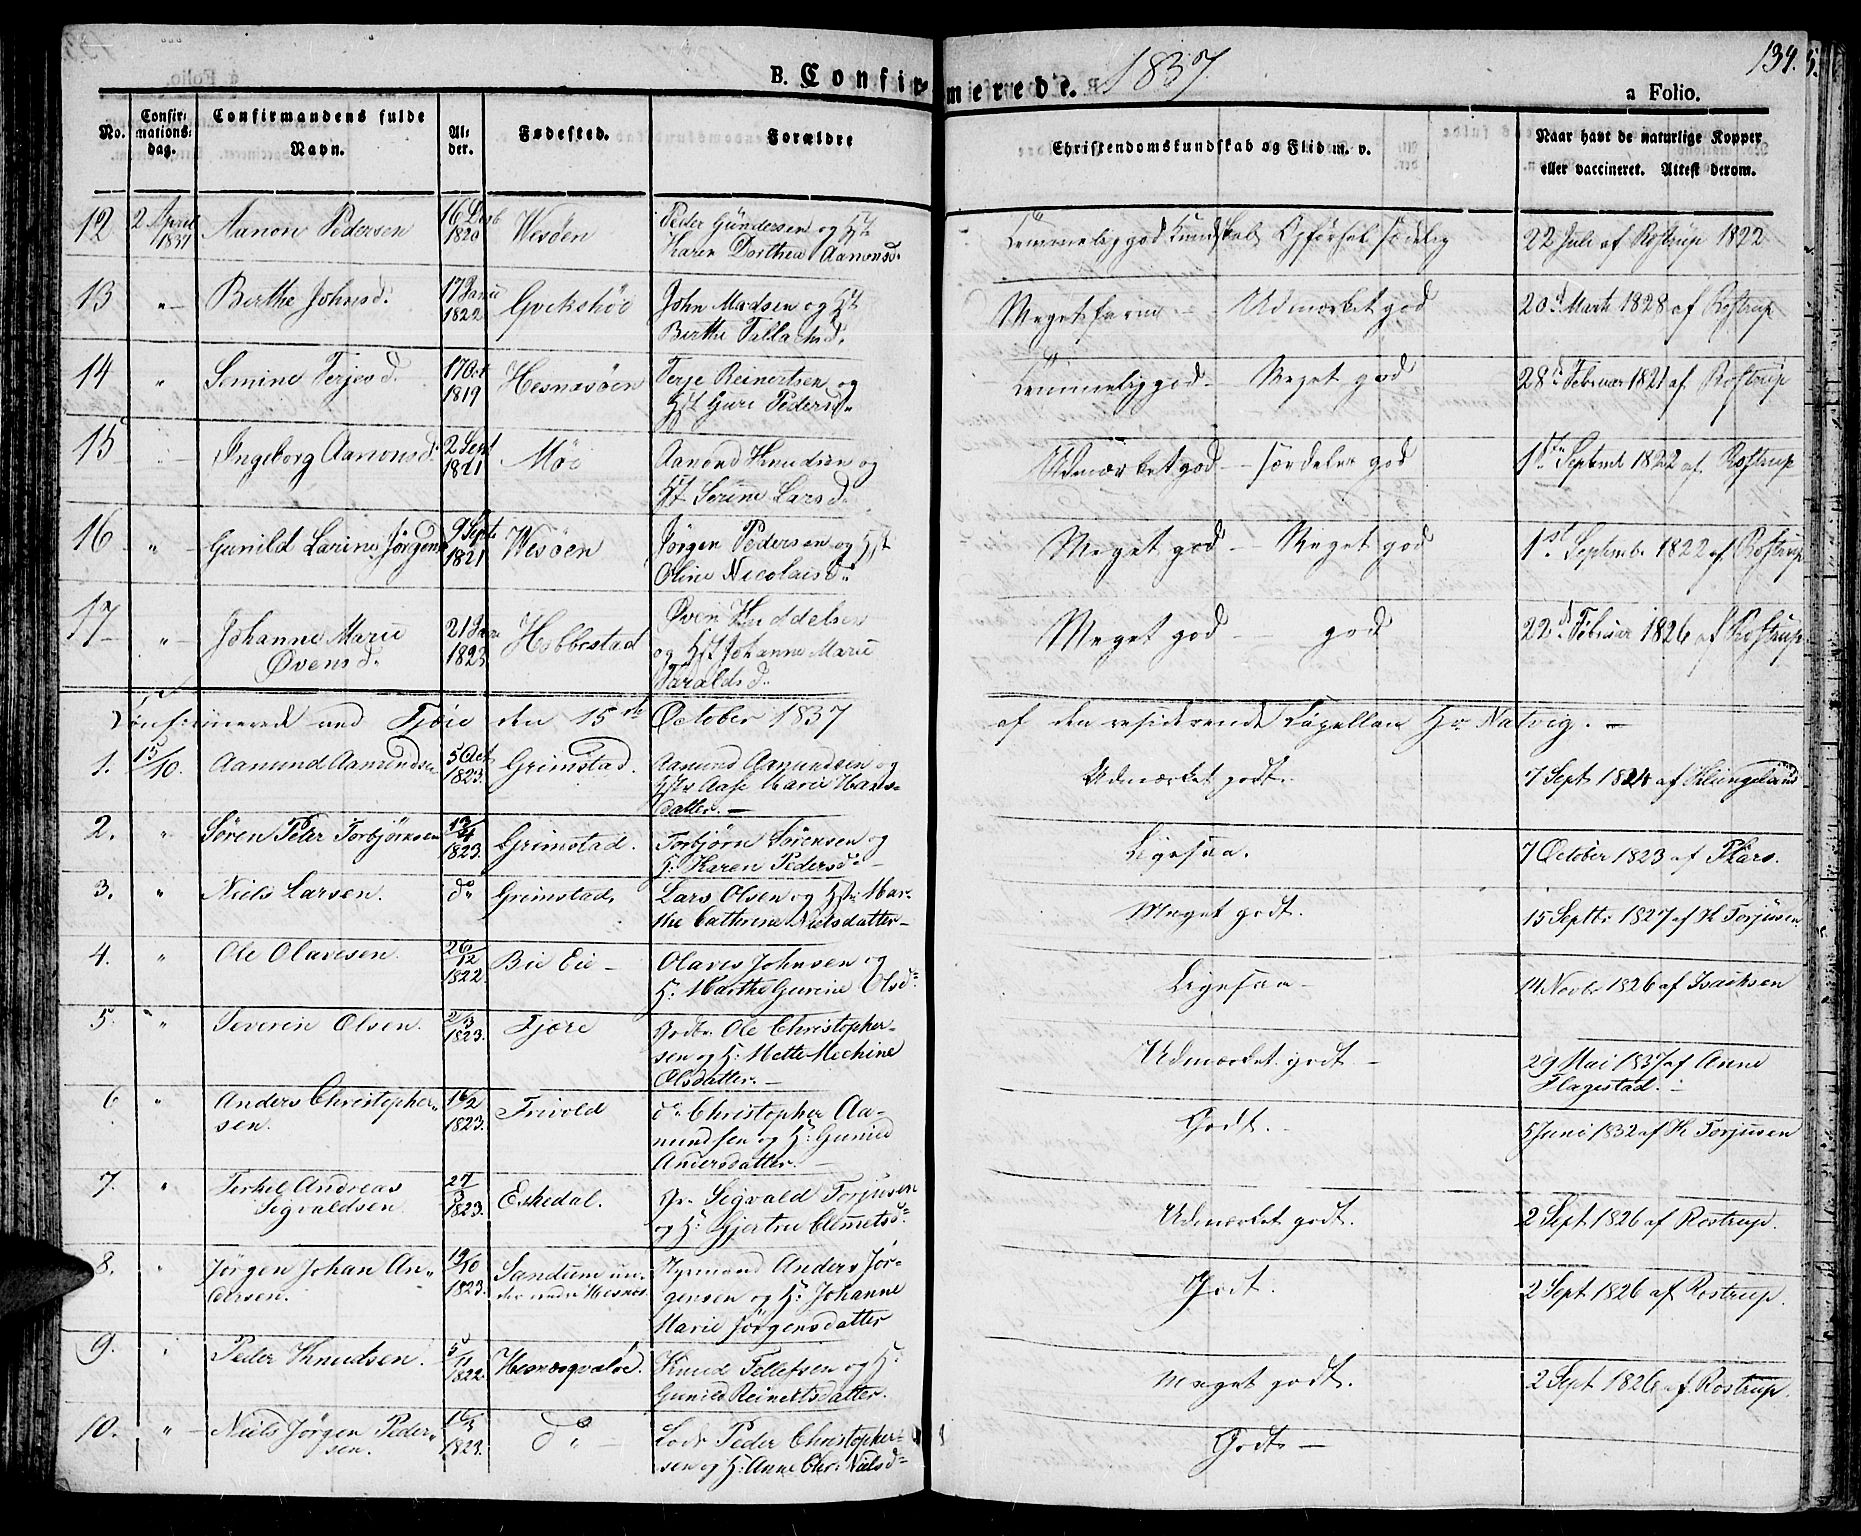 B. Confirmerede. 1837 134.
a Folio.
No. Confirmationsdag. Confirmandens fulde Navn. Alder. Fødested. Forældre Christendomskundskab og Flid m. v. Naar havt de naturlige Kopper eller vaccineret. Attest derom.
12 2 April 1837 Aanon Pedersen 16 Decb 1820 Wesöen Peder Gundersen og Hst Karen Dorthea Aanonsd. Temmelig god Kundskab Opførsel sædelig 22 Juli af Rostrup 1822
13 " Berthe Johnsd. 17 Janu 1822 John Madsen og Hst Berthe Tallachsd. Meget – Udmærket god 20d Marts 1828 af Rostrup
14 " Semine Terjesd. 17 Oct 1819 Hesnæsöen Terje Reinertsen og Hst Guri Pedersd. Temmelig god – Meget god 28d Februar 1821 af Rostrup
15 Ingeborg Aanonsd. 2 Sept 1821 Möe Aanond Knudsen og Hst Serine Larsd. Udmærket god – særdeles god 1ste Septemb 1822 af Rostrup
16 " Gunild Larine Jörgens 9 Sept 1821 Wesöen Jörgen Pedersen og Hst Oline Nicolaisd. Meget god – Meget god 1st Septembe 1822 af Rostrup
17 " Johanne Marie Övensd. 21 Janu 1823 Hobbestad Öven og Hst Johanne Marie Haraldsd. Meget god – god 22d Februar 1826 af Rostrup
Confirmerede ved Fjære den 15de October 1837 af den residerende Capellan Hr Natvig. –
1. 15/10. Aamund Aamundsen 5 Oct 1823. Grimstad. Aamund Aamundsen og Hst Aase Marie Hansdatter. – Udmærket godt. 7 Sept 1824 af Klungeland
2. " Sören Peter Torbjörnsen 13/4 1823. Grimstad. Torbjörn Sörensen og H: Karen Pedersd. – Ligesaa. 7 October 1823 af
3. " Niels Larsen. do Grimstad. Lars Olsen og Hst: Marthe Cathrine Nielsdatter – Meget godt. 15 Septbr 1827 af K Torjusen
4. " Ole Olavesen. 26/12 1822. Bie Eie – Olaves Johnsen og H: Marthe Gurine Olsd. Ligesaa – 14 Novbr 1826 af Isachsen
5. " Severin Olsen. 2/3 1823. Fjære Ole Christophersen og H: Mette Mechine Olsdatter. – Udmærket godt – 29 Mai 1837 af Anne Flagestad. –
6 " Anders Christophersen. 16/2 1823. Trivold do Christopher Aamundsen og H: Gunild Andersdatter. – Godt. – 5 Juni 1832 af K Torjusen
7. " Terkel Andreas Segvaldsen. 27/3 1823. Eskedal. Segvald Torjusen og H: Gjertru Clemetsd. Udmærket godt. 2 Sept 1826 af Rostrup.
8. " Jörgen Johan Andersen. 19/10 1823. Sandum under Hesnes. Anders Jörgensen og H: Johanne Marie Jörgensdatter Godt. 2 Sept 1826 af Rostrup.
9. " Peder Knudsen. 5/11 1822. Knud Tellefsen og H: Gunild Reinertsdatter. Meget godt. 2 Sept 1826 af Rostrup.
10. " Niels Jörgen Pedersen. 1823. do – Peder Christophersen og H: Anne Chr: Nielsd. Godt –